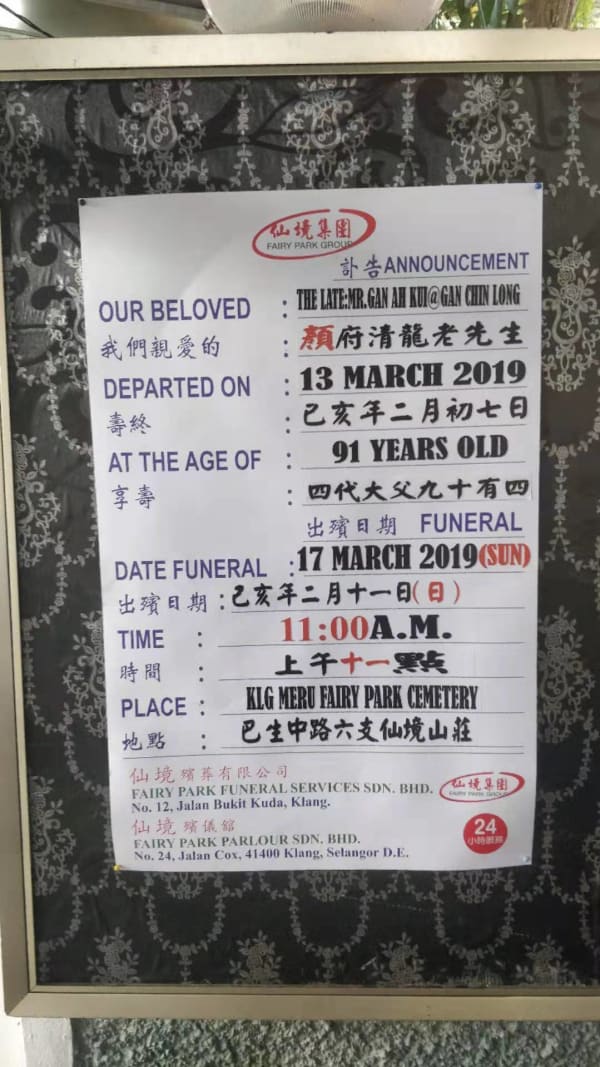 仙境集團
FAIRY PARK GROUP
訃告 ANNOUNCEMENT
OUR BELOVED : THE LATE:MR.GAN AH KUI@GAN CHIN LONG
我們親愛的 : 顏府清龍老先生
DEPARTED ON : 13 MARCH 2019
壽終 : 己亥年二月初七日
AT THE AGE OF : 91 YEARS OLD
享壽 : 四代大父九十有四
出殯日期 FUNERAL
DATE FUNERAL : 17 MARCH 2019(SUN)
出殯日期 : 己亥年二月十一日(日)
TIME : 11:00A.M.
時間 : 上午十一點
PLACE : KLG MERU FAIRY PARK CEMETERY
地點 : 巴生中路六支仙境山莊
仙境殯葬有限公司
FAIRY PARK FUNERAL SERVICES SDN. BHD.
No. 12, Jalan Bukit Kuda, Klang.
仙境集團
FAIRY PARK GROUP
仙境殯儀館
FAIRY PARK PARLOUR SDN. BHD.
No. 24, Jalan Cox, 41400 Klang, Selangor D.E.
24
小時服務